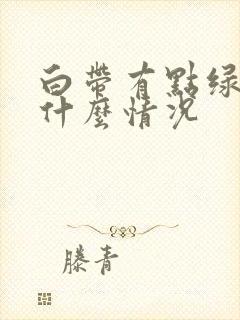 白帶有點绿
什麼情况
滕青